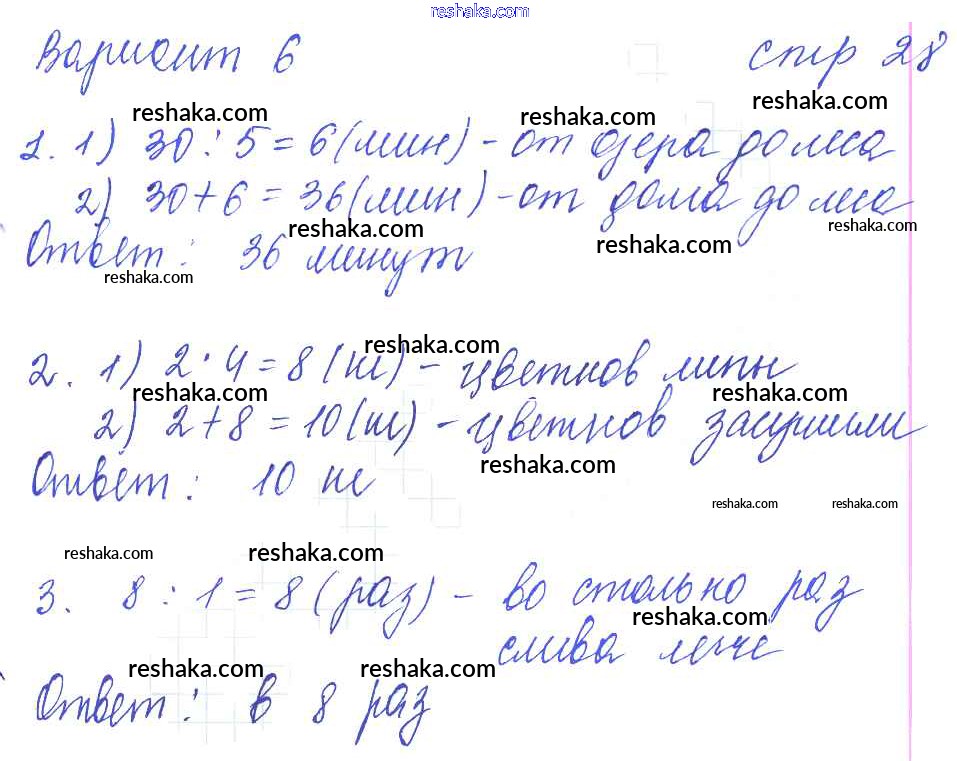 reshaka.com
Вариант 6 стр 28
reshaka.com reshaka.com reshaka.com
1. 1) 30 : 5 = 6 (мин) - от озера до леса
2) 30 + 6 = 36 (мин) - от дома до леса
reshaka.com reshaka.com
Ответ: 36 минут
reshaka.com
reshaka.com
2. 1) 2 · 4 = 8 (кг) - цветков липы
reshaka.com reshaka.com reshaka.com
2) 2 + 8 = 10 (кг) - цветков засушили
reshaka.com
Ответ: 10 кг
reshaka.com reshaka.com
reshaka.com reshaka.com
3. 8 : 1 = 8 (раз) - во столько раз
reshaka.com
слива легче
reshaka.com reshaka.com
Ответ: в 8 раз